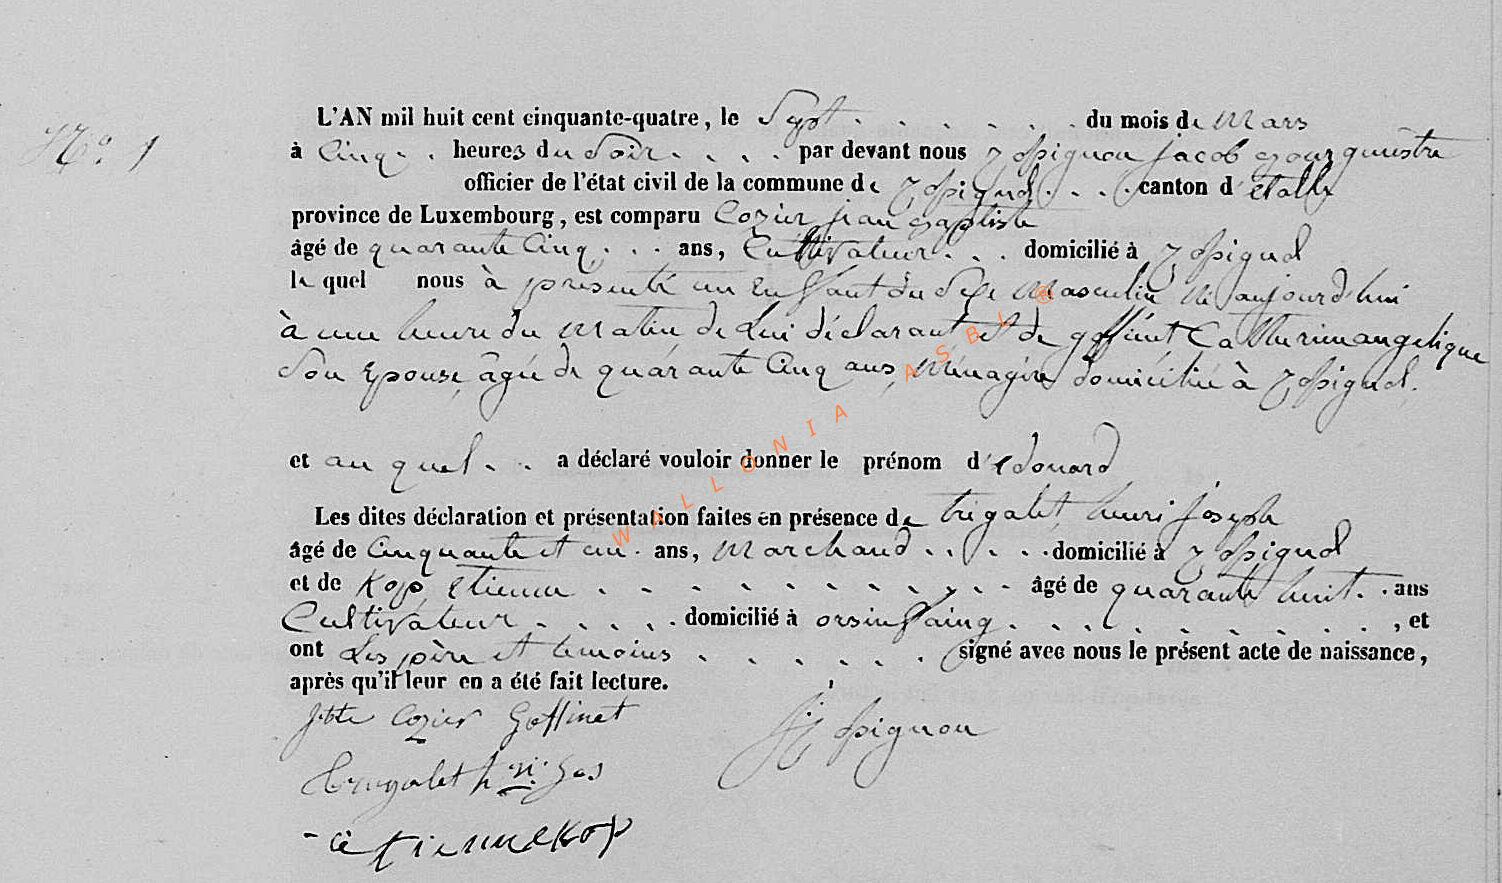 N° 1
L'AN mil huit cent cinquante-quatre, le Sept . . . . . . . du mois de mars
à Cinq . . heures du Soir . . . . par devant nous jacob bourgumestre
officier de l'état civil de la commune de . . . canton d'étalle
province de Luxembourg, est comparu Cozier jean baptiste
âgé de quarante Cinq . . . ans, Cultivateur . . . domicilié à
le quel nous à présenté un Enfant du Sexe Masculin né aujourd'hui
à une heure du Matin de Lui déclarant et de goffinet Catherine angelique
Son Epouse, âgée de quarante Cinq ans, Ménagère domiciliée à
et au quel . . a déclaré vouloir donner le prénom d'edouard
Les dites déclaration et présentation faites en présence de trigalet henri joseph
âgé de Cinquante et un . ans, Marchand . . . . . domicilié à
et de Kop etienne . . . . . . . . . . . âgé de quarante huit . . ans
Cultivateur . . . . . domicilié à orsinfaing . . . . . . . . . . , et
ont Les père et temoins . . . . . . signé avec nous le présent acte de naissance,
après qu'il leur en a été fait lecture.
Jbte Cozier Goffinet
Trigalet hri Jos
etienne Kop
WALLONIA ASBL ®